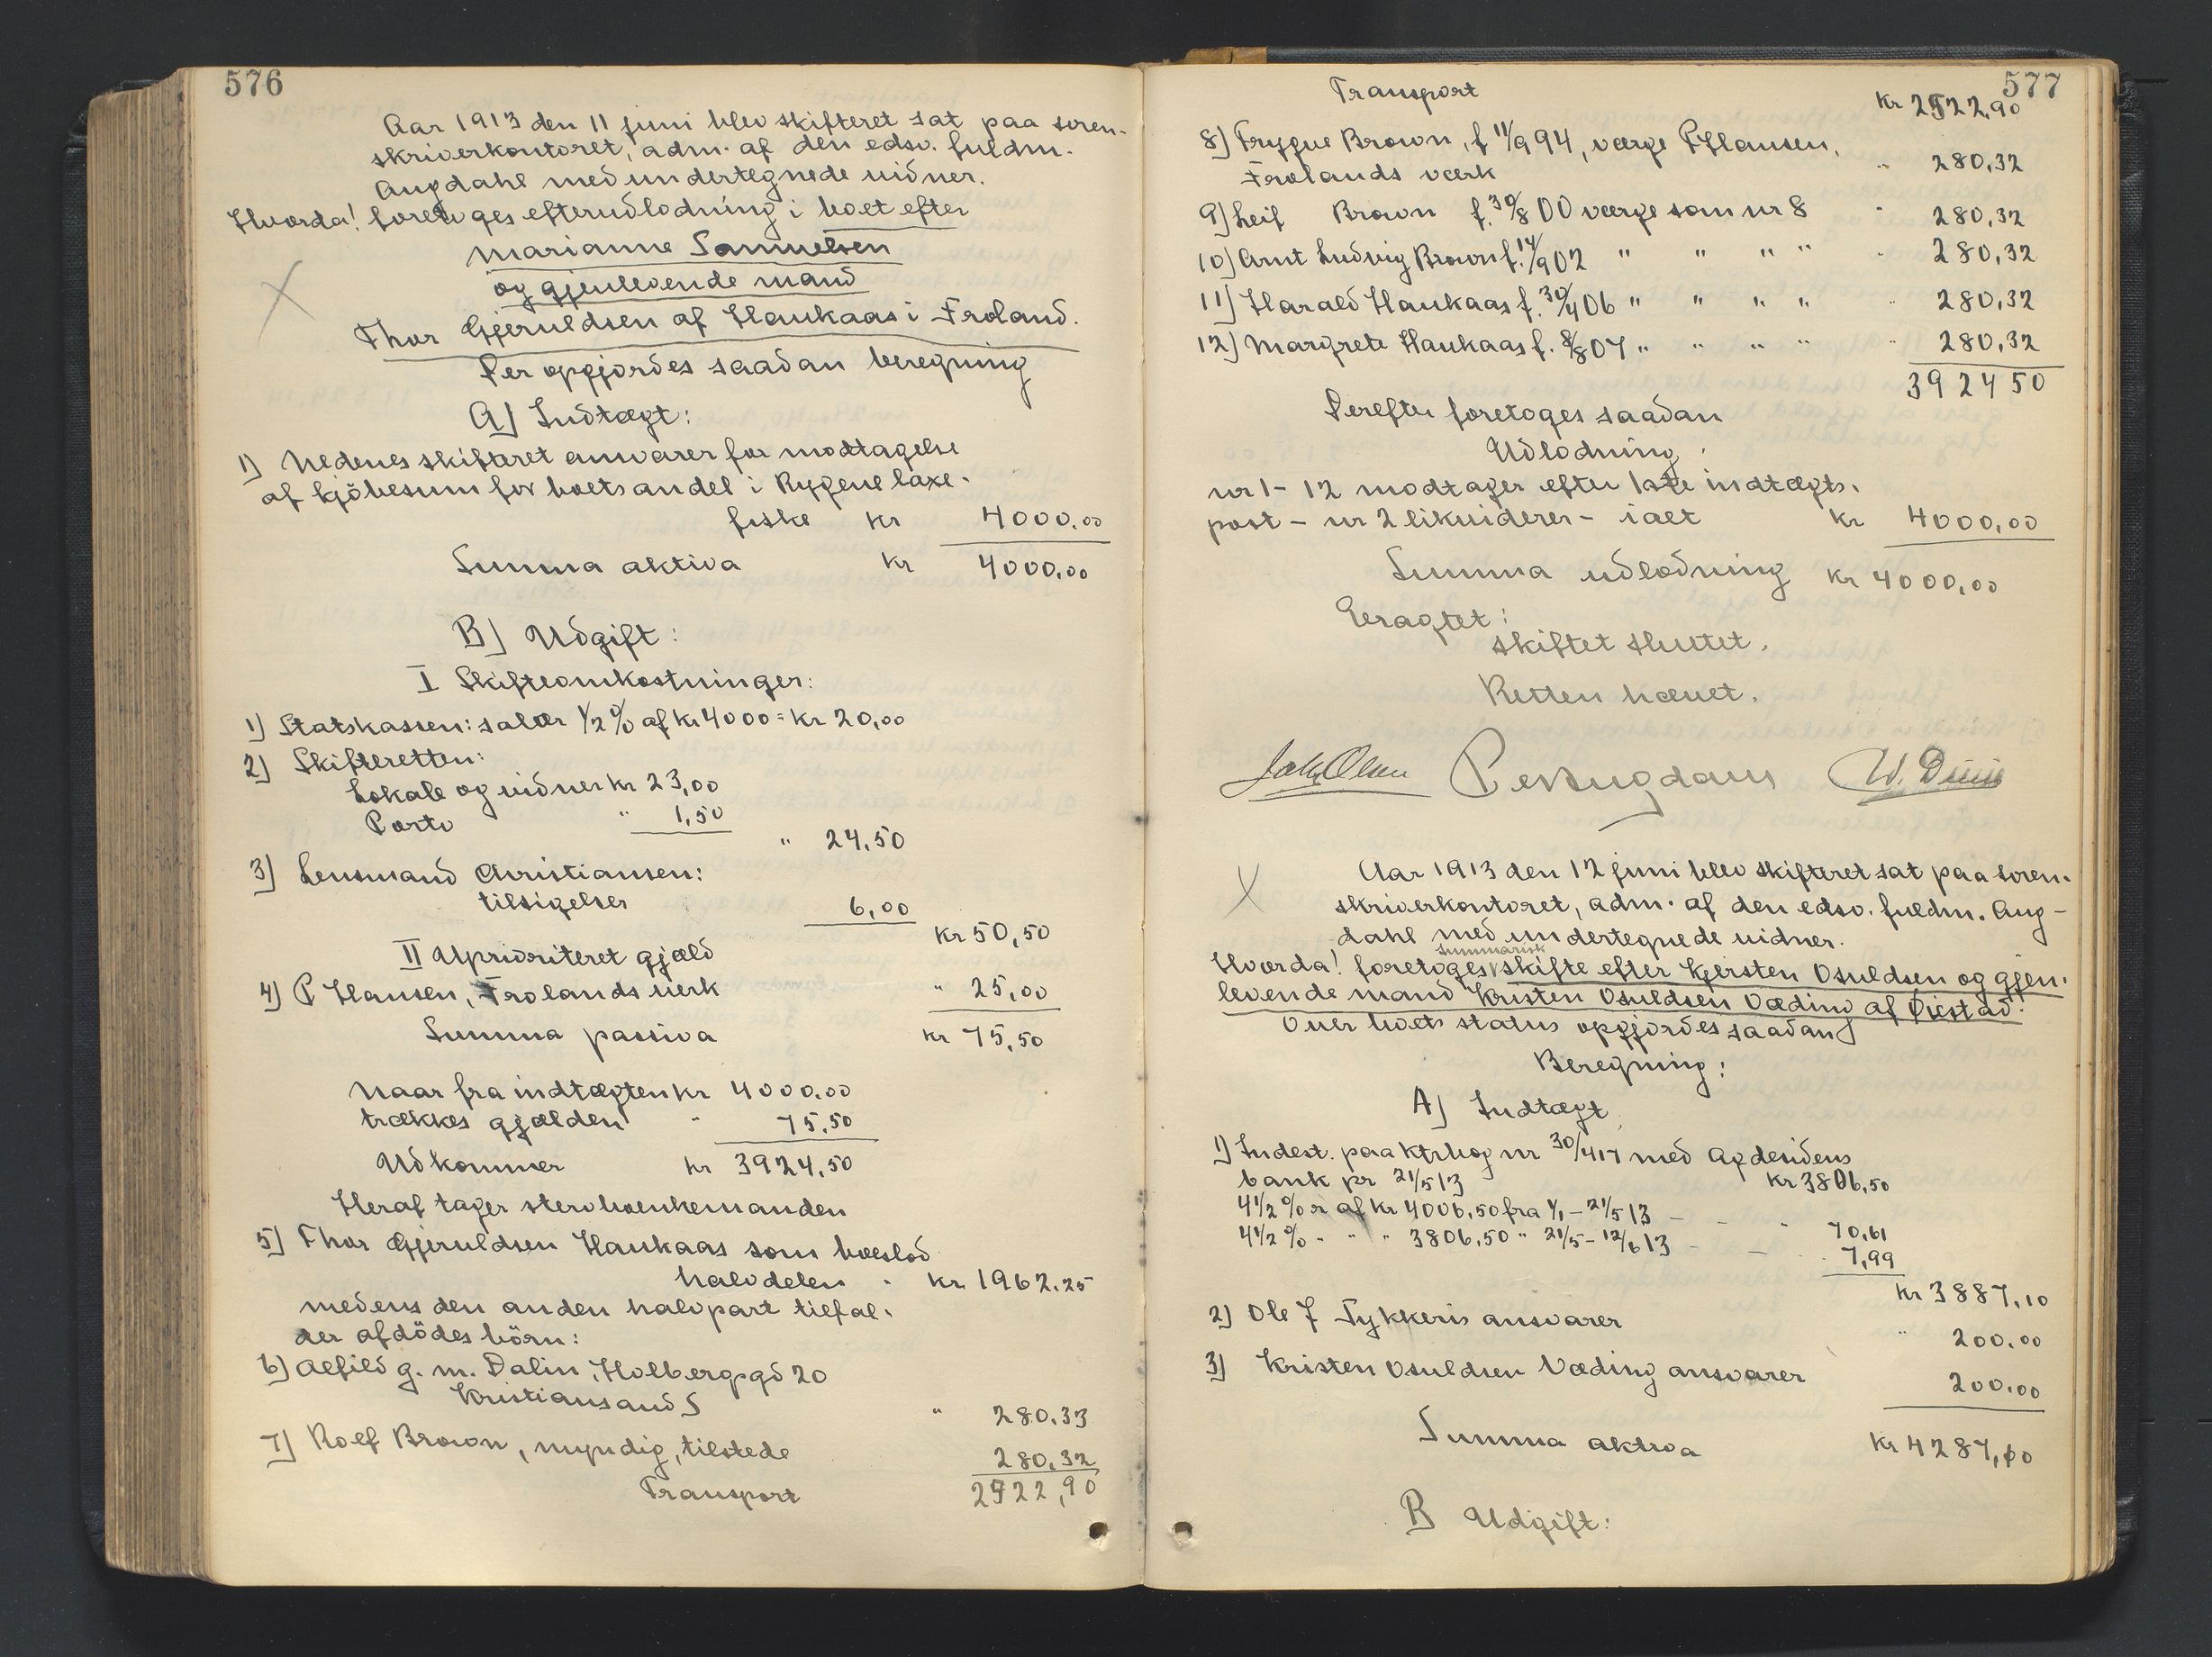 576
Aar 1913 den 11 juni blev skifteret sat paa soren-
skriverkontoret, adm. af den edsv. fuldm.
Augdahl med undertegnede vidner.
Hvorda! foretoges efterudlodning i boet efter
Marianne Samuelsen
og gjenlevende mand
Thor Gjeruldsen af Haukaas i Froland.
Der opgjordes saadan beregning
A) Indtægt:
1) Nedenes skifteret ansvarer for modtagelse
af kjöbesum for boets andel i Rygene laxe-
fiske kr 4000.00
Summa aktiva kr 4000.00
B) Udgift:
I Skifteomkostninger:
1) Statskassen: salær 1/2 % af kr 4000 = kr 20,00
2) Skifteretten:
Lokale og vidner kr 23,00
Porto " 1,50
" 24,50
3) Lensmand Christiansen:
tilsigelser 6,00
kr 50,50
II Uprioriteret gjæld
4) P Hansen, Frolands verk " 25,00
Summa passiva kr 75,50
Naar fra indtægten kr 4000.00
trækkes gjælden " 75,50
Udkommer kr 3924,50
Heraf tager stervboenkemanden
5) Thor Gjeruldsen Haukaas som boeslod
halvdelen - kr 1962.25
medens den anden halvpart tilfal-
der afdödes börn:
6) Alfild g. m. Dalin, Holbergsgd 20
Kristiansand S " 280.33
7) Rolf Brown, myndig, tilstede 280,32
Transport 2522,90
577
Transport kr 2522,90
8) Trygve Brown, f 11/9 94, værge P Hansen,
Frolands værk " 280,32
9) Leif Brown f. 30/8 00 værge som nr 8 " 280,32
10) Arnt Ludvig Brown f. 14/9 02 " " " " " 280,32
11) Harald Haukaas f. 30/4 06 " " " " " 280,32
12) Margrete Haukaas f. 8/8 07 " " " " " 280,32
3924 50
Derefter foretoges saadan
Udlodning:
nr 1 - 12 modtager efter 1ste indtægts-
post - nr 2 likviderer - ialt kr 4000,00
Summa udlodning kr 4000,00
Eeragtet:
skiftet sluttet.
Retten hævet.
Joh. Olsen P Augdahl W. Duus
Aar 1913 den 12 juni blev skifteret sat paa soren-
skriverkontoret, adm. af den edsv. fuldm. Aug-
dahl med undertegnede vidner.
summarisk
Hvorda! foretoges skifte efter Kjersten Osuldsen og gjen-
levende mand Kristen Osuldsen Væding af Öiestad.
Over boets status opgjordes saadan
Beregning:
A) Indtægt
1) Indest. paa ktrbog nr 30/417 med Agdesidens
bank pr 21/5 13 kr 3806,50
4 1/2 % r af kr 4006,50 fra 1/1 - 21/5 13 - - " 70,61
4 1/2 % " " " 3806,50 " 21/5 - 12/6 13 - - - 7,99
kr 3887,10
2) Ole J Tykkeris ansvarer " 200.00
3) Kristen Osuldsen Væding ansvarer 200.00
Summa aktiva kr 4287,10
B Udgift: